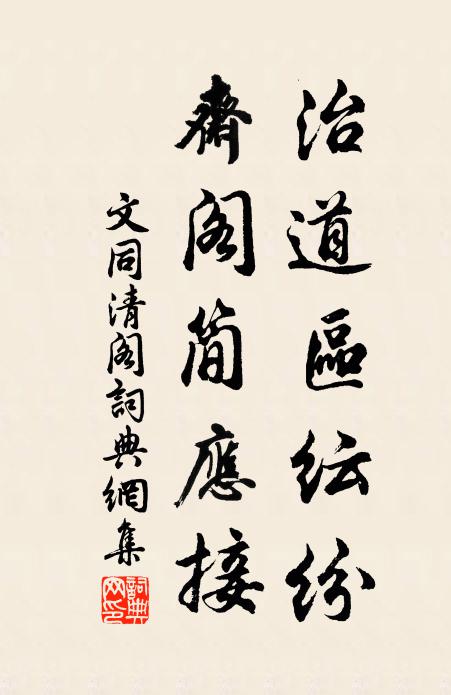 治道區紜紛
齋閣簡應接
文同清閣詞典網集
詞典網印